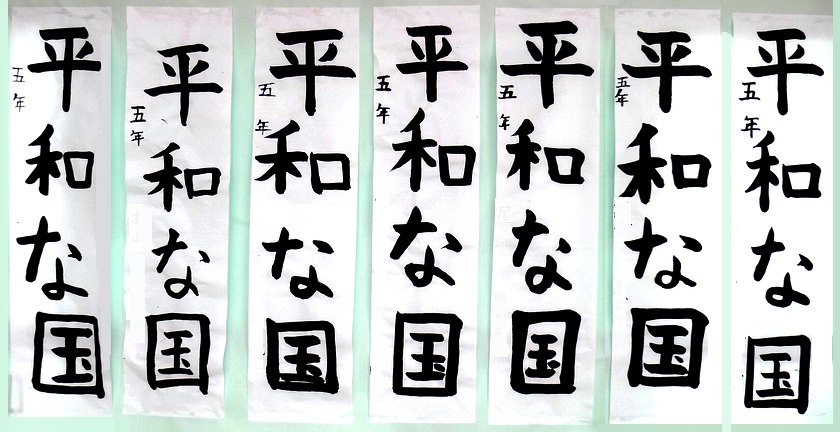 平和な国
五年
平和な国
五年
平和な国
五年
平和な国
五年
平和な国
五年
平和な国
五年
平和な国
五年